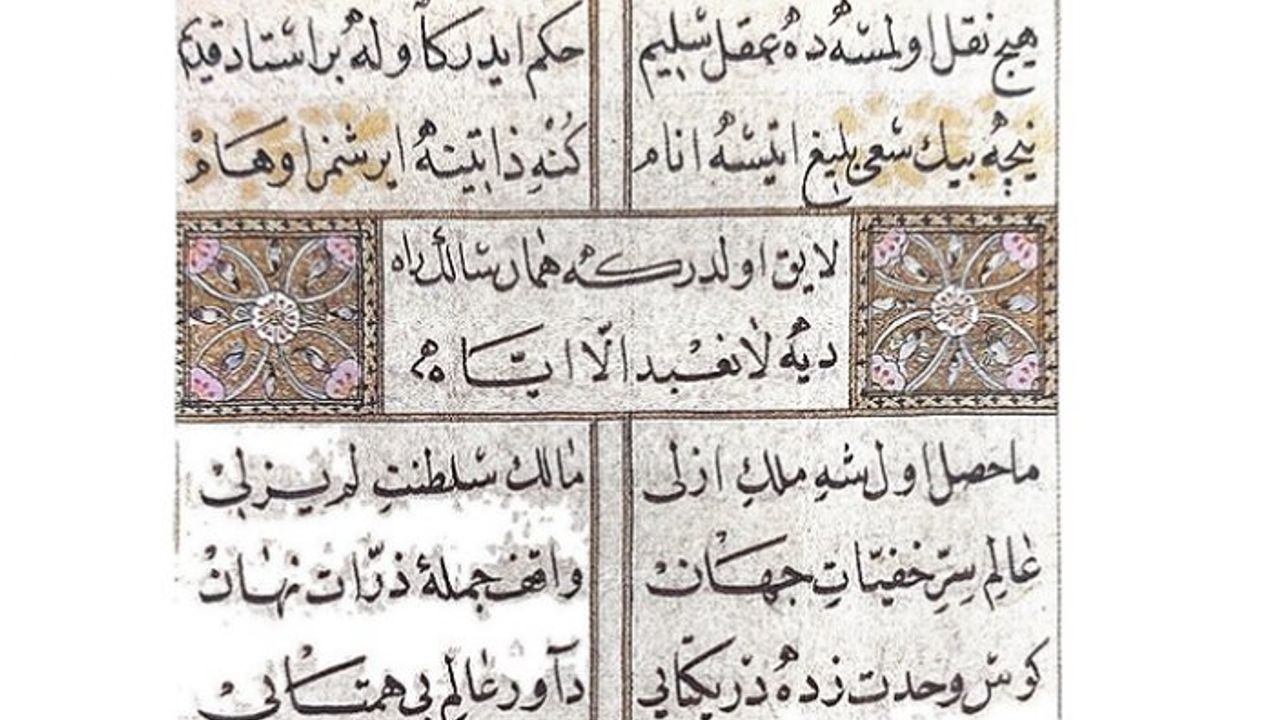 هیچ نقل اولمسه ده عقل سلیم حکم ایدر کآوله بر استاد قدیم
نیجه بیك سعی بلیغ ایتسه انام کنهِ ذاتینه ایرشمز اوهام
لایق اولدر که همان سالك راه
دیه لا نعبد الّا ایّاه
ماحصل اول شهِ ملكِ ازلی مالك سلطنتِ لم یزلی
عالمِ سِرِّ خفیّاتِ جهان واقف جملهٔ ذرّات نهان
کوس وحدت زدهٔ در یکتایی داور عالم بی همتایی